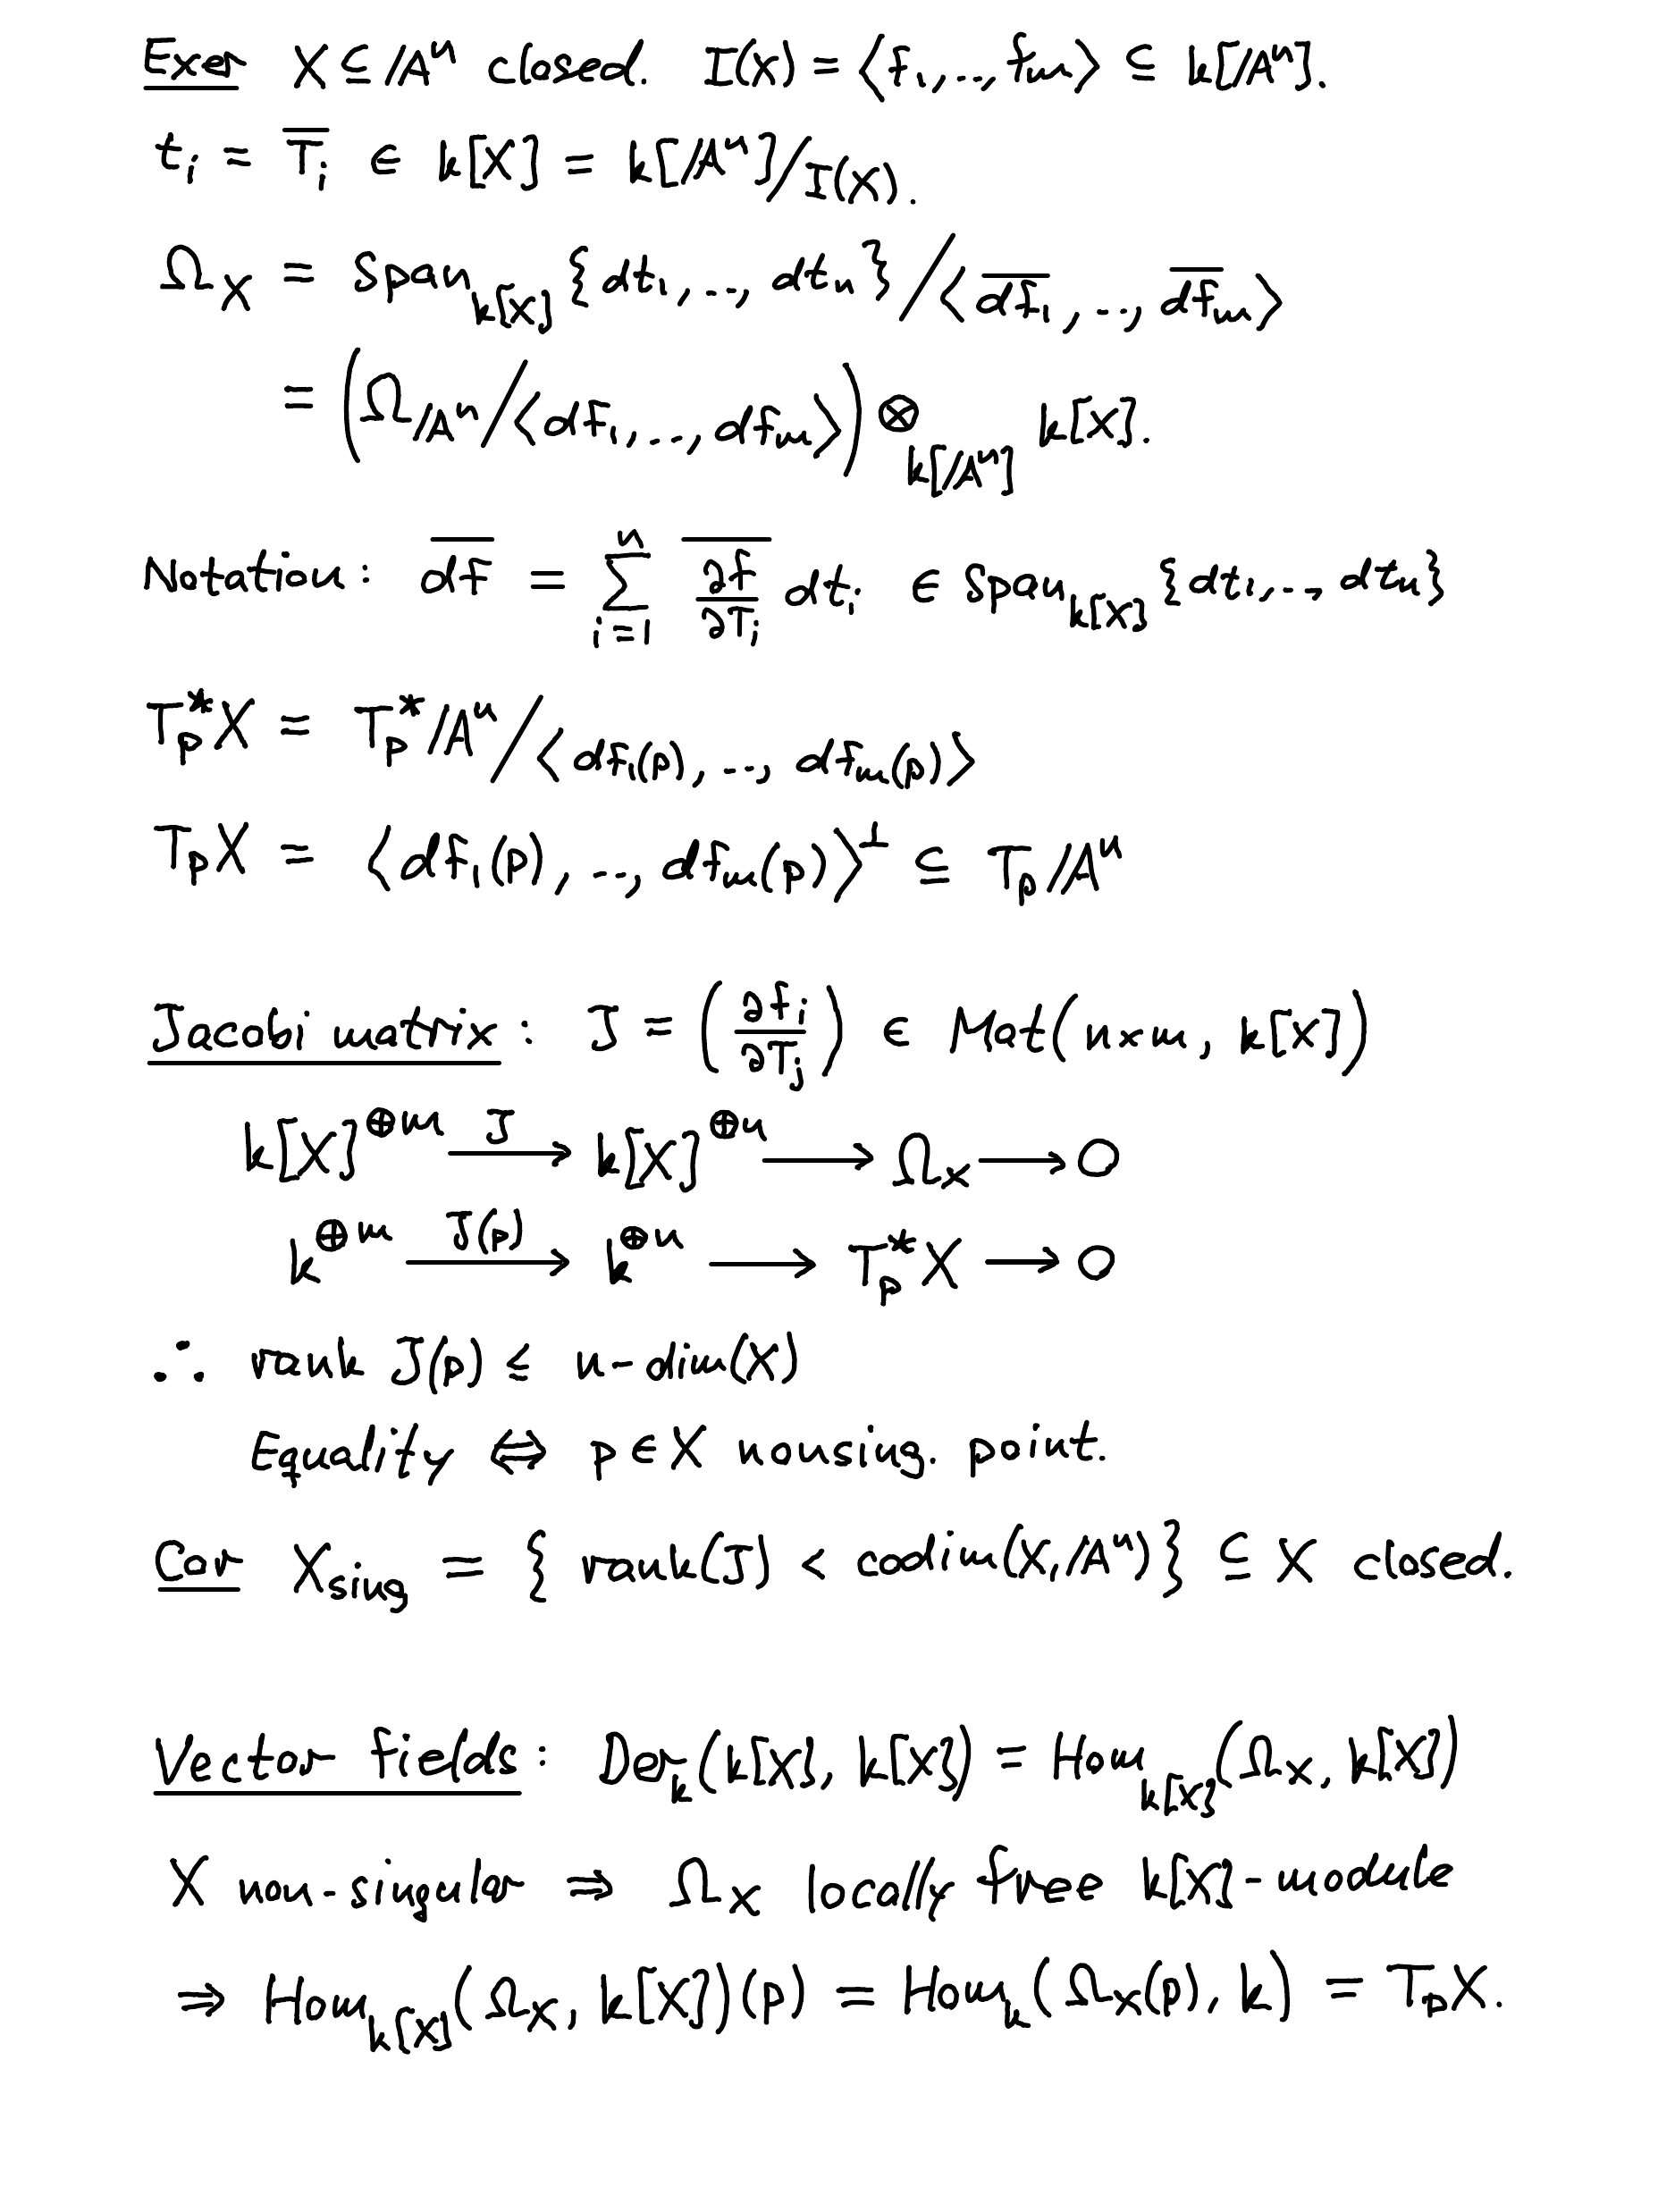 Exer X ⊆ 𝔸ⁿ closed. I(X) = ⟨f₁,..,fₘ⟩ ⊆ k[𝔸ⁿ].
tᵢ = \overline{Tᵢ} ∈ k[X] = k[𝔸ⁿ]/I(X).
Ω_X = Span_{k[X]} {dt₁,..,dtₙ} / ⟨\overline{df₁},..,\overline{dfₘ}⟩
= (Ω_{𝔸ⁿ}/⟨df₁,..,dfₘ⟩) ⊗_{k[𝔸ⁿ]} k[X].
Notation: \overline{df} = \sum_{i=1}^{n} \overline{\frac{∂f}{∂Tᵢ}} dtᵢ ∈ Span_{k[X]} {dt₁,..,dtₙ}
T_p^*X = T_p^*𝔸ⁿ / ⟨df₁(p),..,dfₘ(p)⟩
T_pX = ⟨df₁(p),..,dfₘ(p)⟩^⊥ ⊆ T_p𝔸ⁿ
Jacobi matrix: J = (\frac{∂fᵢ}{∂Tⱼ}) ∈ Mat(n×m, k[X])
k[X]^{⊕m} \xrightarrow{J} k[X]^{⊕n} ⟶ Ω_X ⟶ 0
k^{⊕m} \xrightarrow{J(p)} k^{⊕n} ⟶ T_p^*X ⟶ 0
∴ rank J(p) ≤ n-dim(X)
Equality ⇔ p∈X nonsing. point.
Cor X_{sing} = { rank(J) < codim(X,𝔸ⁿ)} ⊆ X closed.
Vector fields: Der_k(k[X], k[X]) = Hom_{k[X]}(Ω_X, k[X])
X non-singular ⇒ Ω_X locally free k[X]-module
⇒ Hom_{k[X]}(Ω_X, k[X])(p) = Hom_k(Ω_X(p), k) = T_pX.